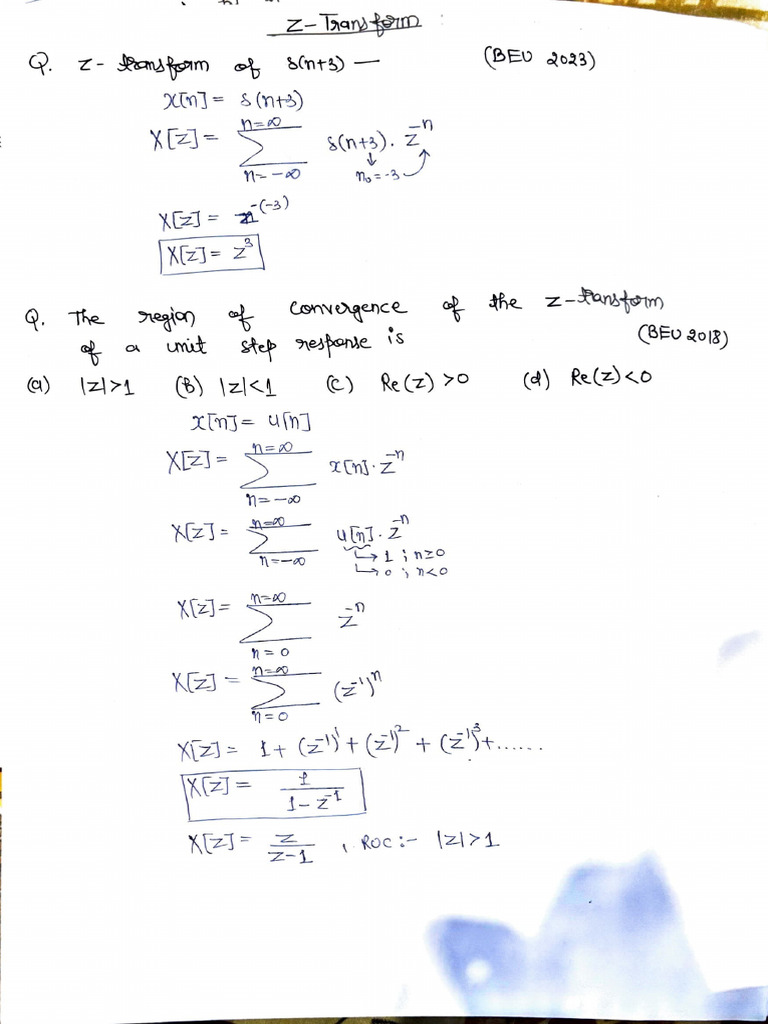 Z-Transform
Q. Z-transform of δ(n+3) — (BEU 2023)
x[n] = δ(n+3)
X[z] = ∑_{n=-∞}^{n=∞} δ(n+3). z^{-n}
↓ n₀=-3
X[z] = z^{-(-3)}
X[z] = z³
Q. The region of convergence of the z-transform
of a unit step response is (BEU 2018)
(a) |z|>1 (b) |z|<1 (c) Re(z) >0 (d) Re(z)<0
x[n] = u[n]
X[z] = ∑_{n=-∞}^{n=∞} x[n]. z^{-n}
X[z] = ∑_{n=-∞}^{n=∞} u[n]. z^{-n}
↳ 1 ; n≥0
↳ 0 ; n<0
X[z] = ∑_{n=0}^{n=∞} z^{-n}
X[z] = ∑_{n=0}^{n=∞} (z^{-1})^n
X[z] = 1 + (z^{-1})^1 + (z^{-1})^2 + (z^{-1})^3 + ......
X[z] = 1/(1 - z^{-1})
X[z] = z/(z-1) , ROC :- |z|>1